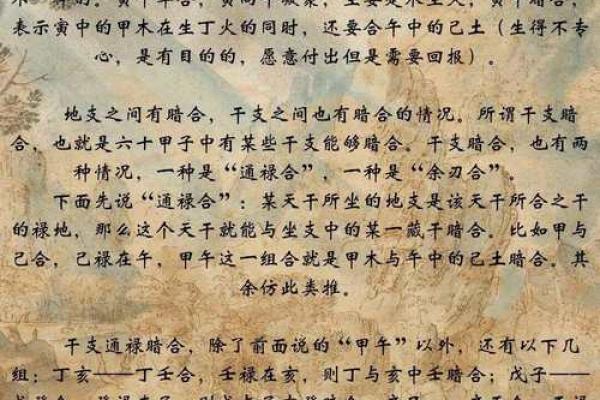 表示寅中的甲木在生丁火的同时，还要合午中的己土（生得不专
心，是有目的的，愿意付出但是需要回报）。
地支之间有暗合，干支之间也有暗合的情况。所谓干支暗
合，也就是六十甲子中有某些干支能够暗合。干支暗合，也有两
种情况，一种是“通禄合”，一种是“余刃合”。
下面先说“通禄合”：某天干所坐的地支是该天干所合之干
的禄地，那么这个天干就能与坐支中的某一藏干暗合。比如甲与
己合，己禄在午，甲午这一组合就是甲木与午中的己土暗合。其
余仿此类推。
干支通禄暗合，除了前面说的“甲午”以外，还有以下几
组：丁亥——丁壬合，壬禄在亥，则丁与亥中壬暗合；戊子——